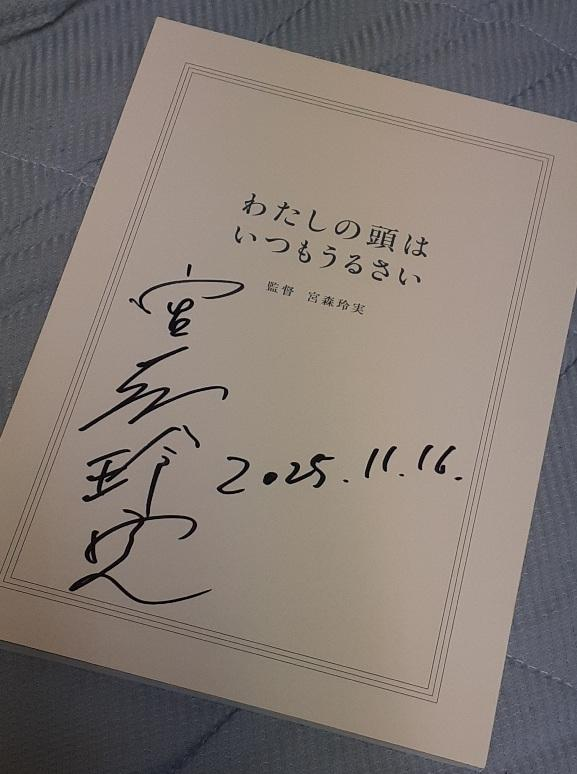 わたしの頭は
いつもうるさい
監督 宮森玲実
宮森玲実
2025.11.16.